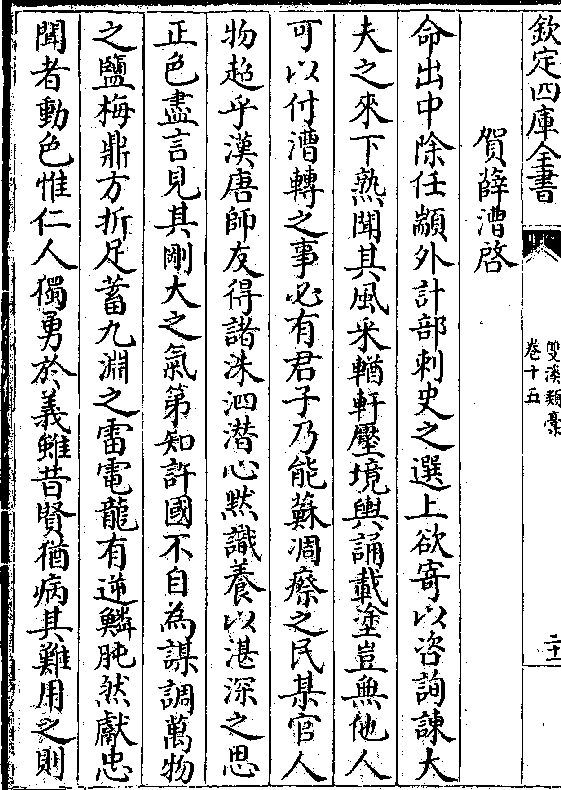 欽定四庫全書
雙溪類藁
卷十五
二十一
賀薛漕啓
命出中除任顓外計部刺史之選上欲寄以咨詢諫大
夫之來下熟聞其風采輶軒壓境輿誦載塗豈無他人
可以付漕轉之事必有君子乃能蘇凋瘵之民某官人
物超乎漢唐師友得諸洙泗潜心黙識養以湛深之思
正色盡言見其剛大之氣第知許國不自為謀調萬物
之鹽梅鼎方折足蓄九淵之雷電龍有逆鱗肫然獻忠
聞者動色惟仁人獨勇於義雖昔賢猶病其難用之則